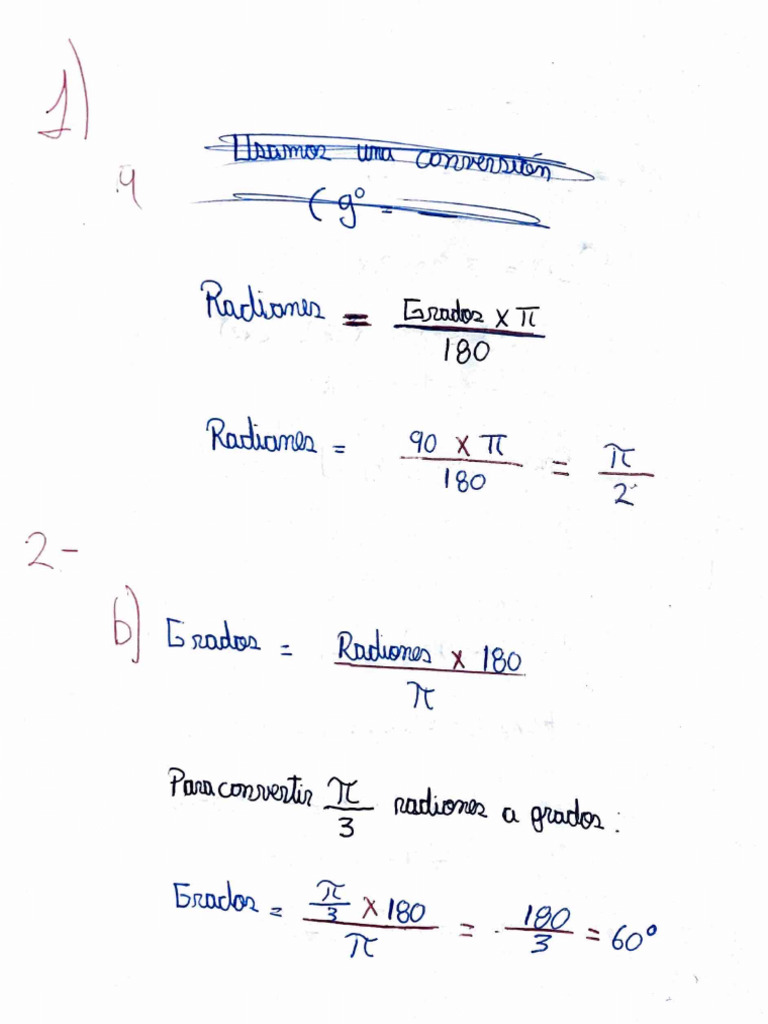 1)
a
Usamos una conversión
( g° =
Radianes = Grados x π / 180
Radianes = 90 x π / 180 = π / 2
2-
b) Grados = Radianes x 180 / π
Para convertir π/3 radianes a grados:
Grados = π/3 x 180 / π = 180 / 3 = 60°